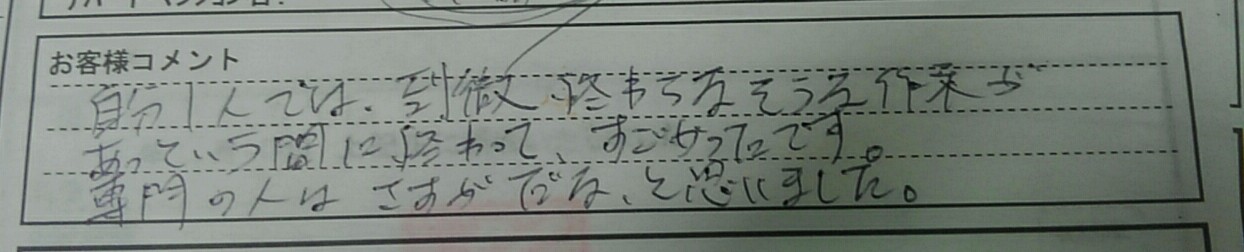 アパート・マンション名:
お客様コメント
自分1人では、到徹終わらなそうな作業が
あっという間に終わって、すごかったです。
専門の人はさすがだな、と思いました。